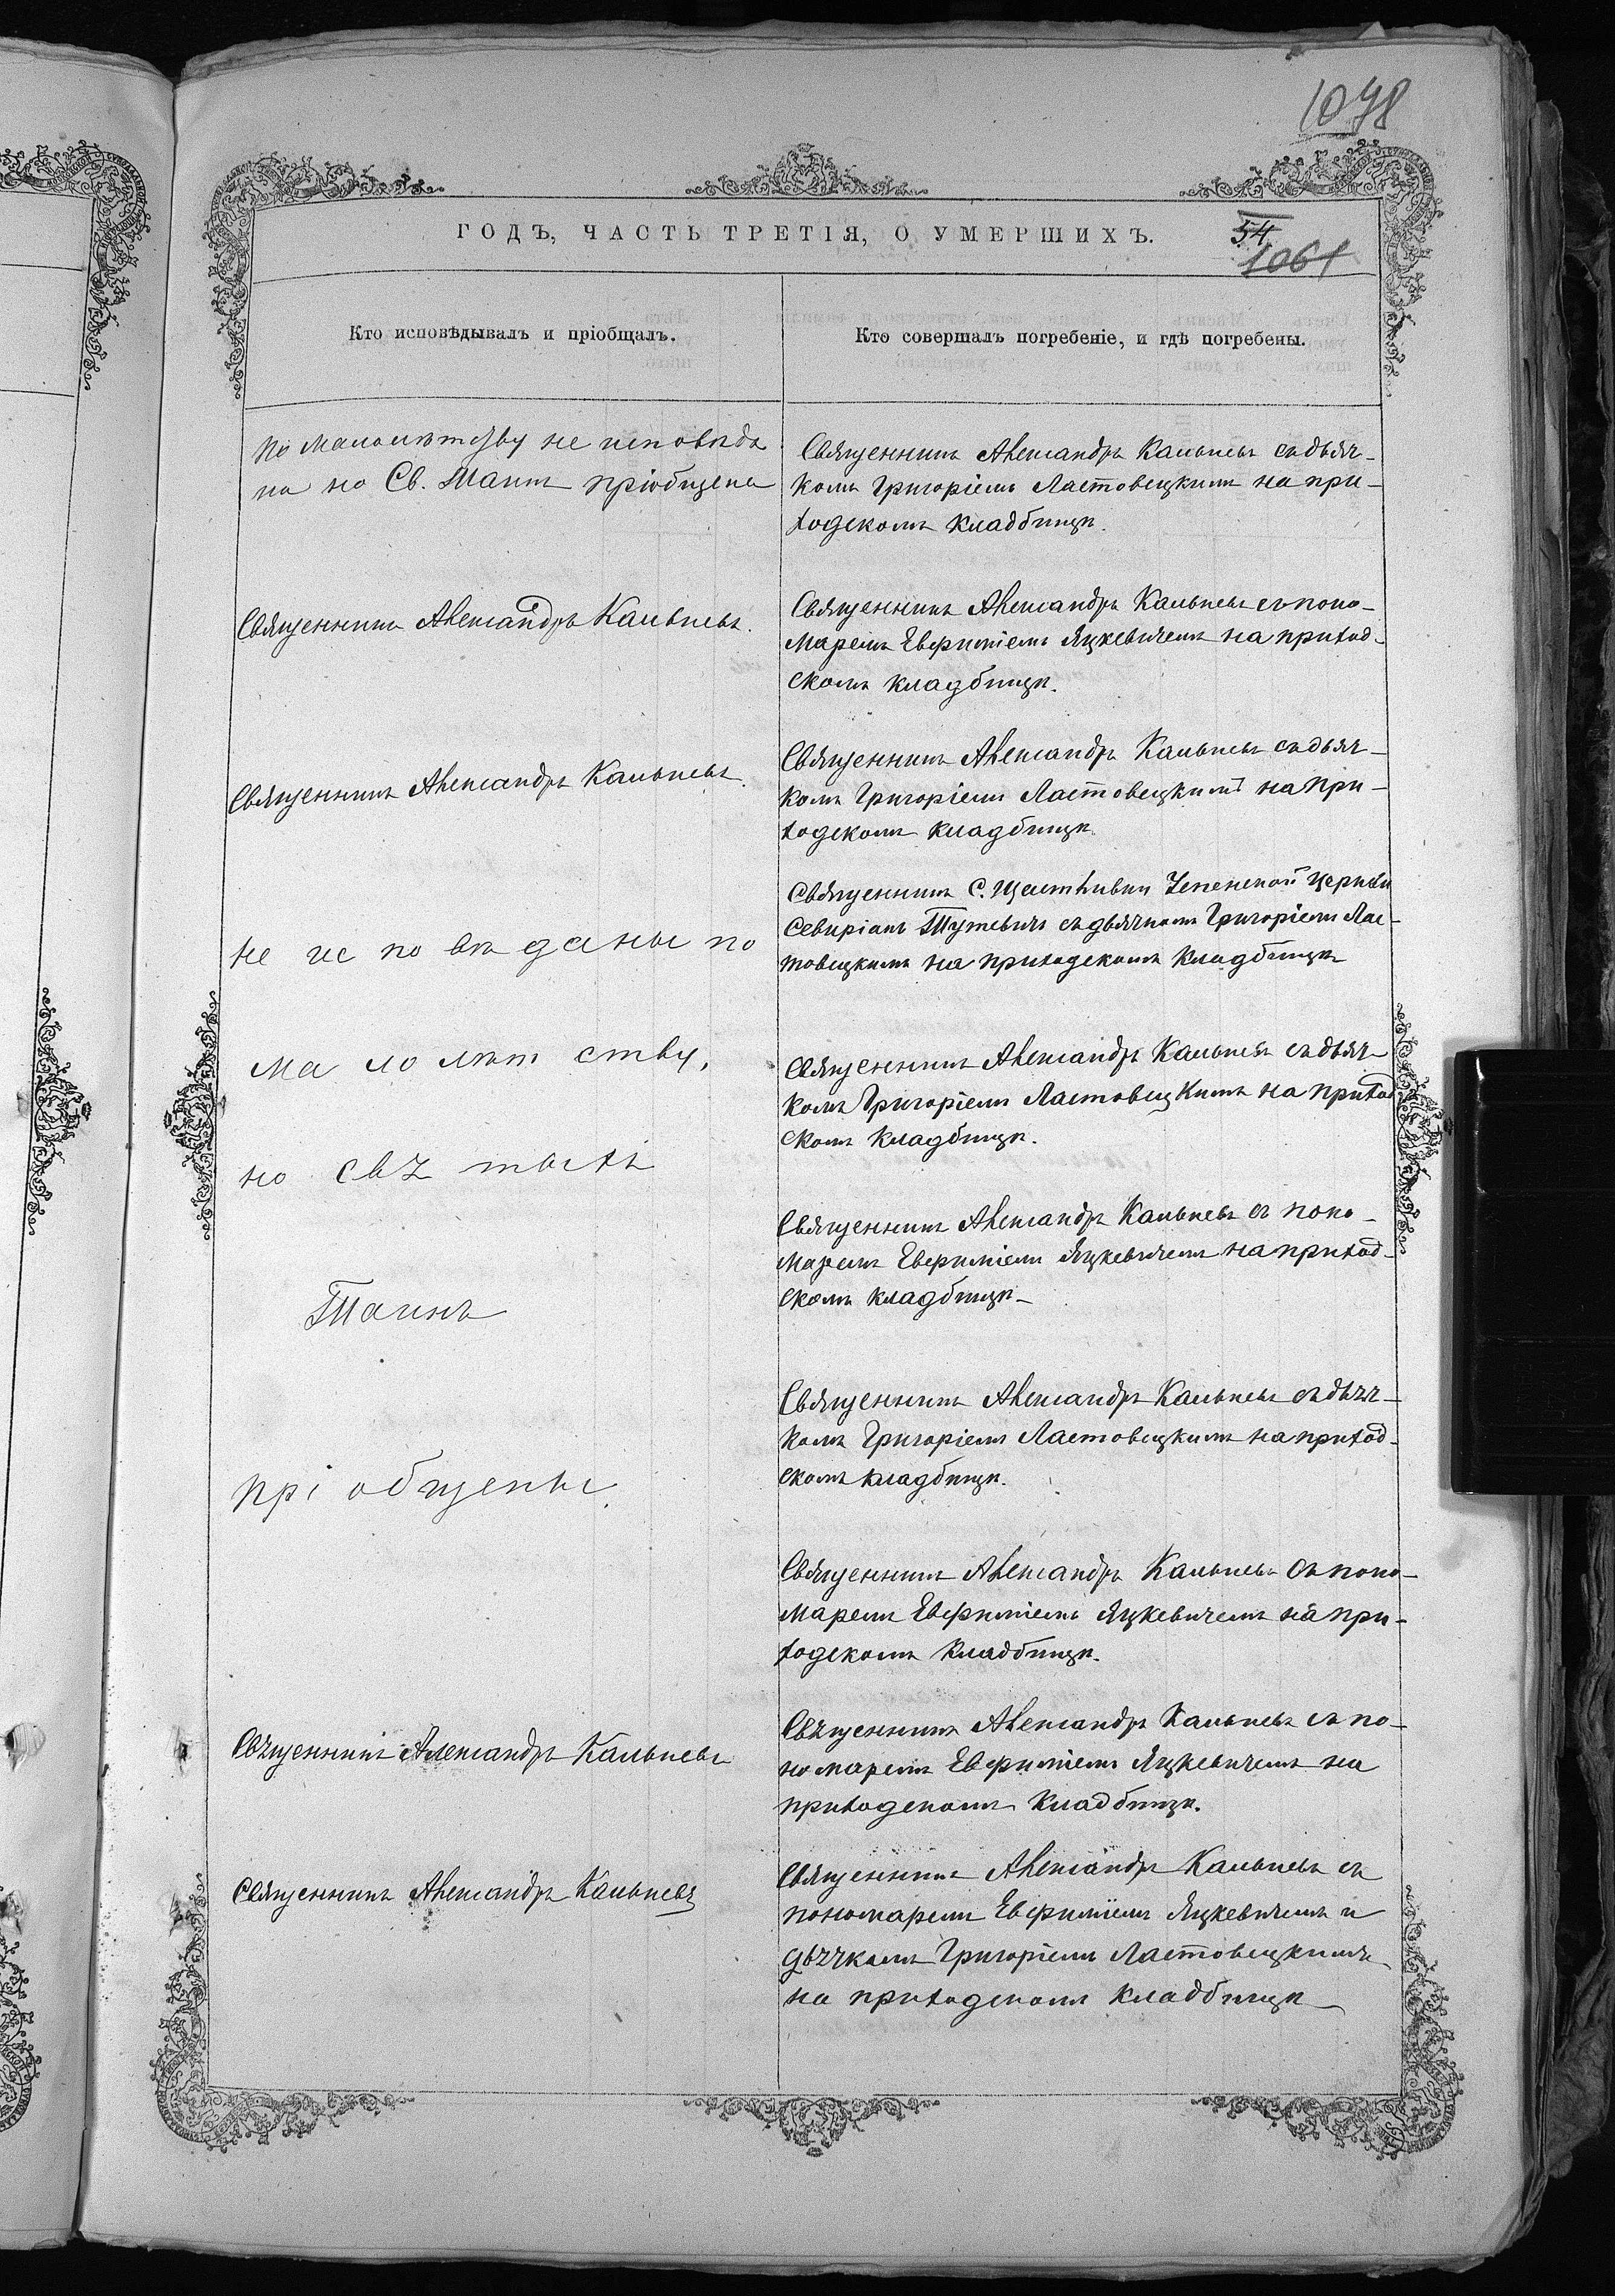 1078
ГОДЪ, ЧАСТЬ ТРЕТІЯ, О УМЕРШИХЪ.
54
1061
Кто исповѣдывалъ и пріобщалъ.
Кто совершалъ погребеніе, и гдѣ погребены.
по малолѣтству не исповѣда
на но Св. Таинъ пріобщена
Священникъ Александръ Кальневъ съ дьяч-
комъ Григоріемъ Ластовецкимъ на при-
ходскомъ кладбищѣ.
Священникъ Александръ Кальневъ.
Священникъ Александръ Кальневъ съ поно-
маремъ Евфиміемъ Яцкевичемъ на приход-
скомъ кладбищѣ.
Священникъ Александръ Кальневъ.
Священникъ Александръ Кальневъ съ дьяч-
комъ Григоріемъ Ластовецкимъ на при-
ходскомъ кладбищѣ
не ис по вѣ даны по
ма ло лѣт ству,
но свя тыхъ
Таинъ
прі общены.
Священникъ С. Щастливки Успенской церкви
Севиріанъ Тутевичъ съ дьячкомъ Григоріемъ Лас-
товецкимъ на приходскомъ кладбищѣ
Священникъ Александръ Кальневъ съ дьяч-
комъ Григоріемъ Ластовецкимъ на приход
скомъ кладбищѣ.
Священникъ Александръ Кальневъ съ поно-
маремъ Евфиміемъ Яцкевичемъ на приход-
скомъ кладбищѣ-
Священникъ Александръ Кальневъ съ дьяч-
комъ Григоріемъ Ластовецкимъ на приход-
скомъ кладбищѣ.
Священникъ Александръ Кальневъ съ поно-
маремъ Евфиміемъ Яцкевичемъ на при-
ходскомъ кладбищѣ.
Священникъ Александръ Кальневъ
Священникъ Александръ Кальневъ съ по-
номаремъ Евфиміемъ Яцкевичемъ на
приходскомъ кладбищѣ.
Священникъ Александръ Кальневъ
Священникъ Александръ Кальневъ съ
пономаремъ Евфиміемъ Яцкевичемъ и
дьячкомъ Григоріемъ Ластовецкимъ
на приходскомъ кладбищѣ